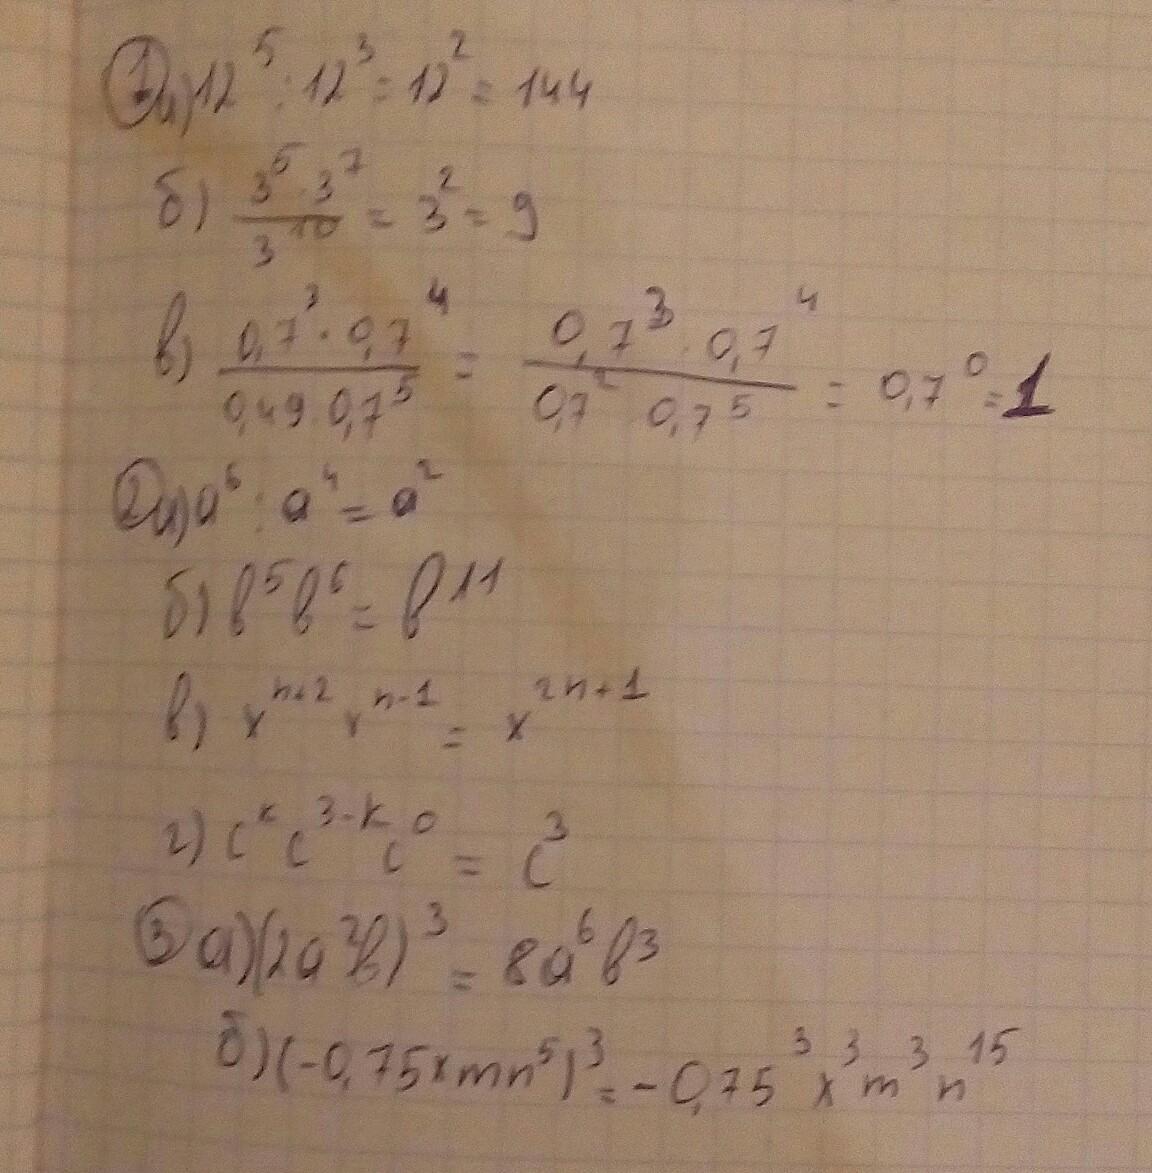 ① а) 12⁵ : 12³ = 12² = 144
б) (3⁵ · 3⁷)/3¹⁰ = 3² = 9
в) (0,7³ · 0,7⁴)/(0,49 · 0,7⁵) = (0,7³ · 0,7⁴)/(0,7² · 0,7⁵) = 0,7⁰ = 1
② а) a⁶ : a⁴ = a²
б) b⁵b⁶ = b¹¹
в) xⁿ⁺² xⁿ⁻¹ = x²ⁿ⁺¹
г) cᵏ c³⁻ᵏ c⁰ = c³
③ а) (2a²b)³ = 8a⁶b³
б) (-0,75xmn⁵)³ = -0,75³x³m³n¹⁵